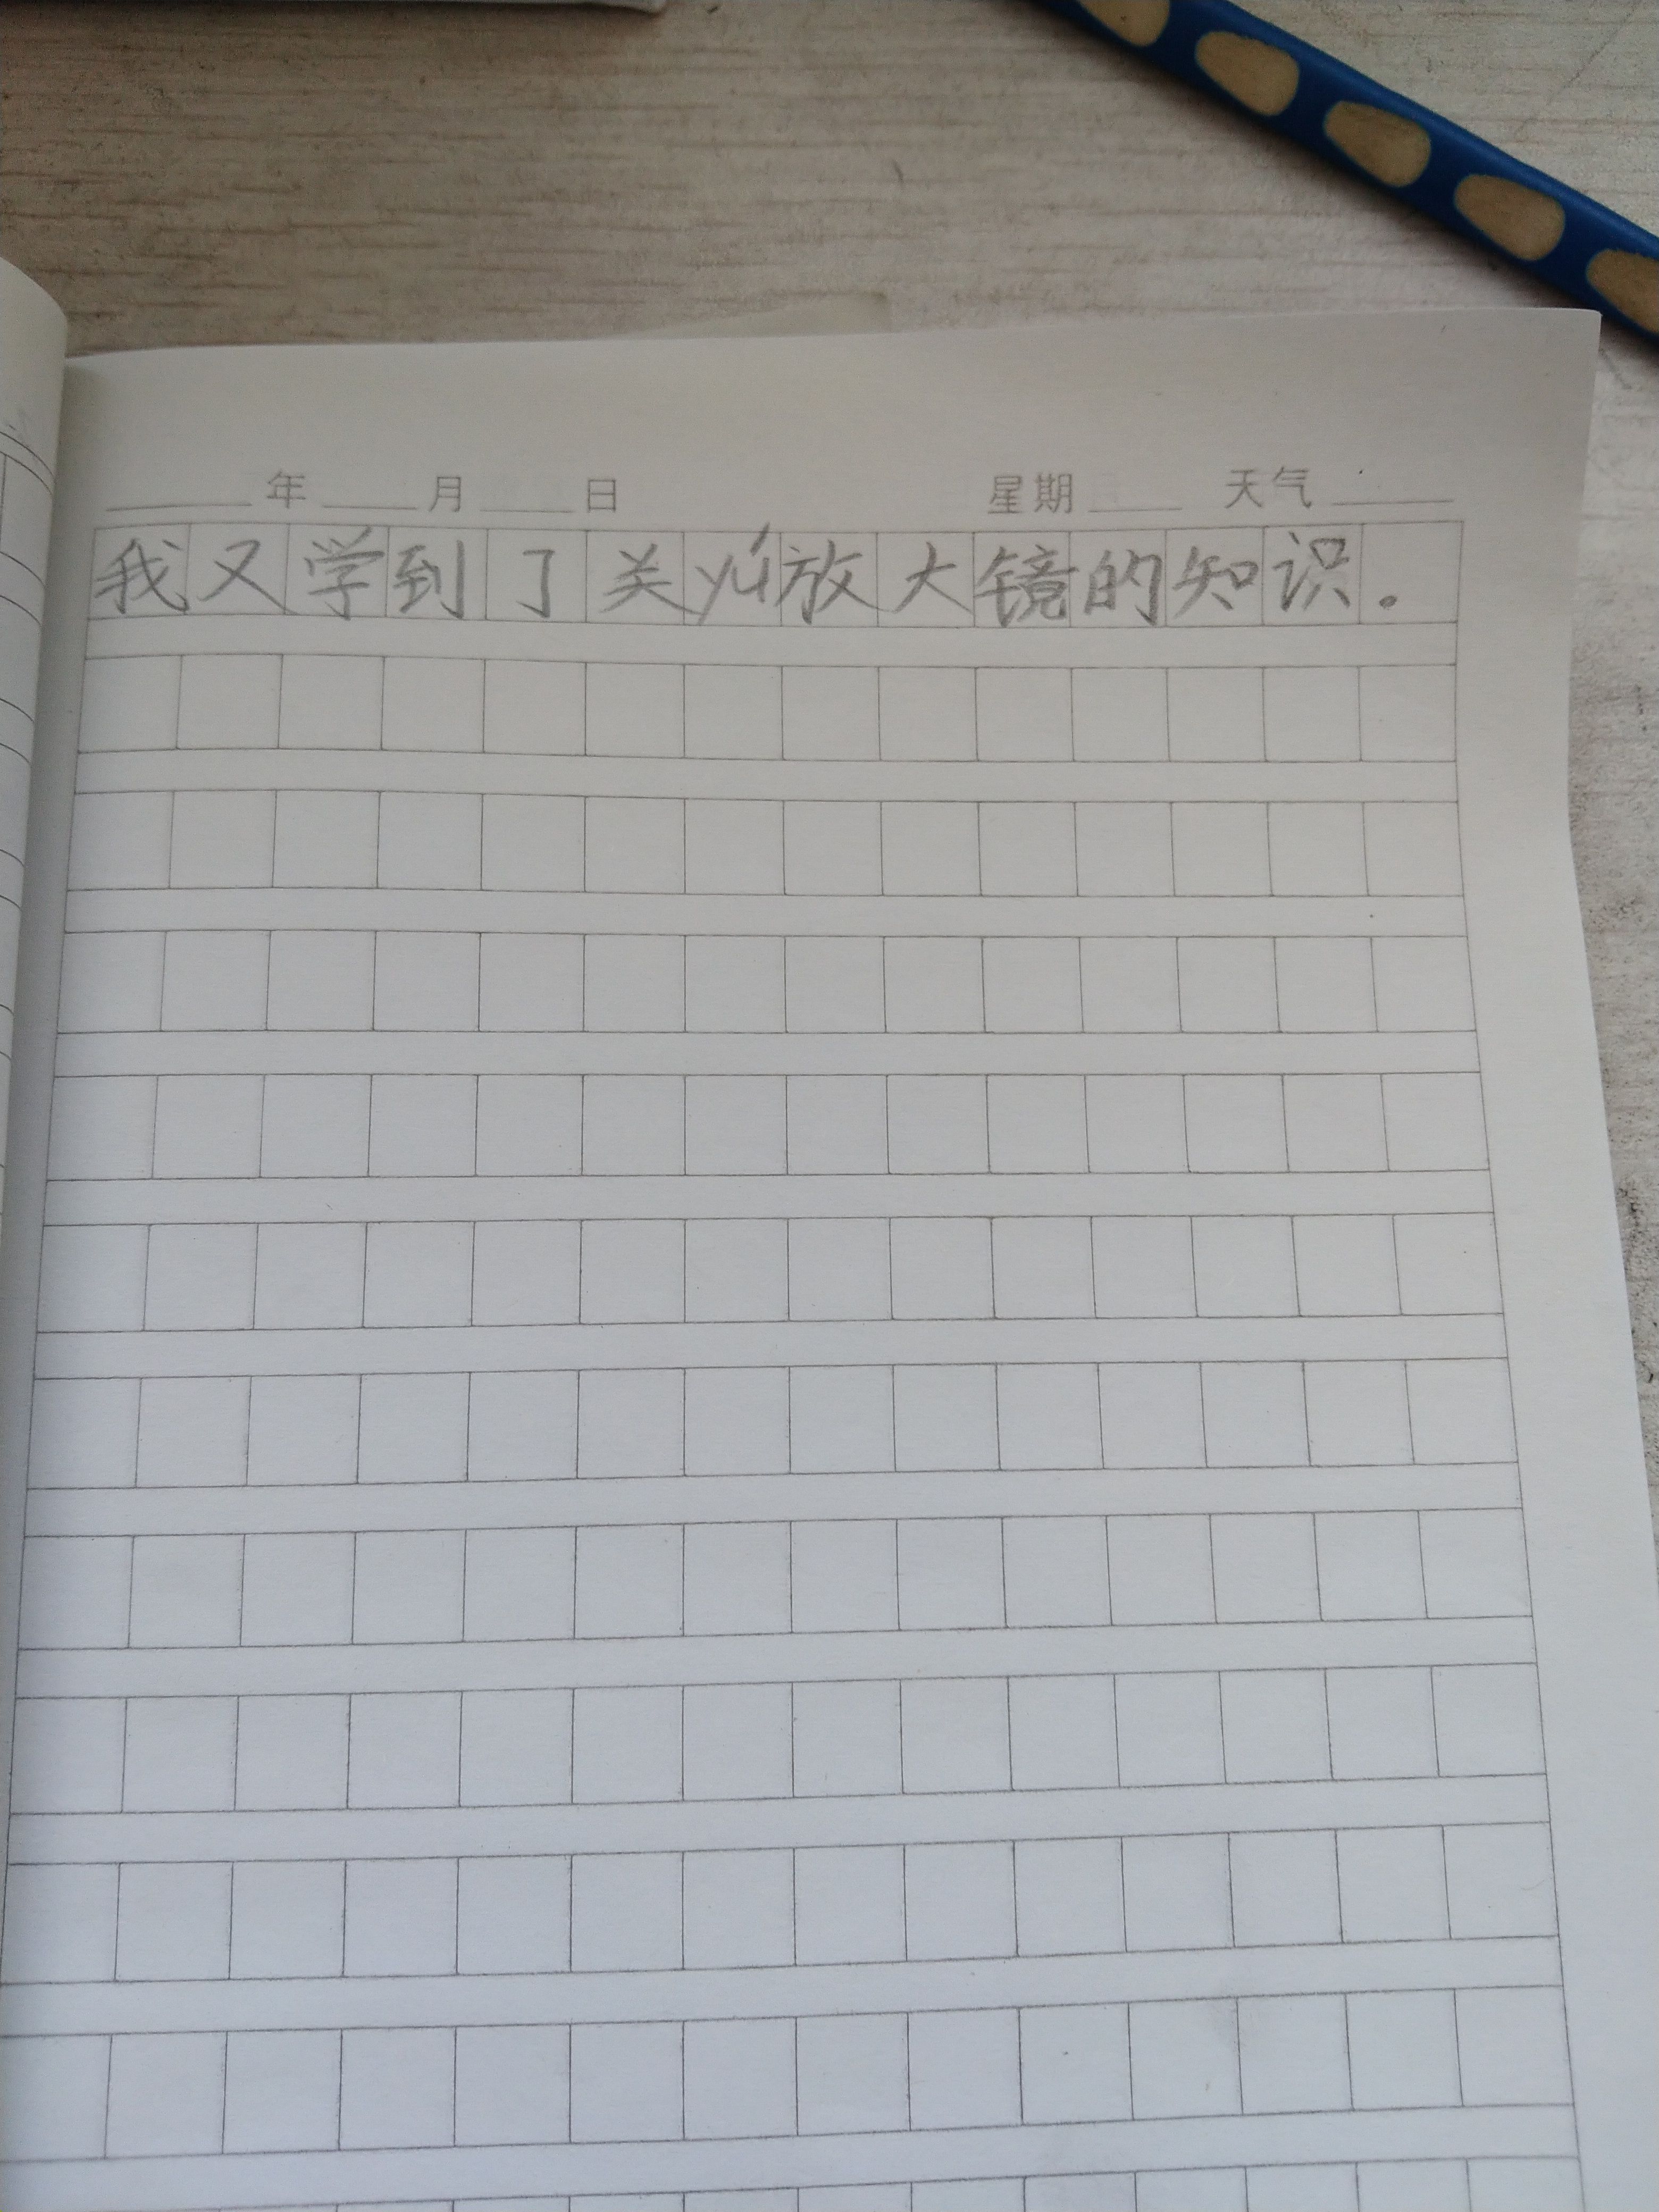 年 月 日 星期 天气
我又学到了关yú放大镜的知识。